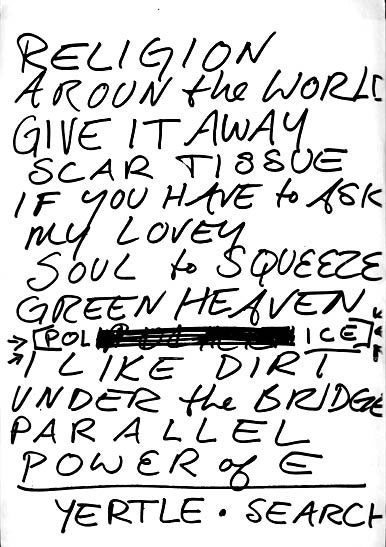 RELIGION
AROUN the WORLD
GIVE IT AWAY
SCAR TISSUE
IF YOU HAVE to ASK
MY LOVEY
SOUL to SQUEEZE
GREEN HEAVEN
→ [POL ICE]
→ I LIKE DIRT
UNDER the BRIDGE
PARALLEL
POWER of E
YERTLE • SEARCH